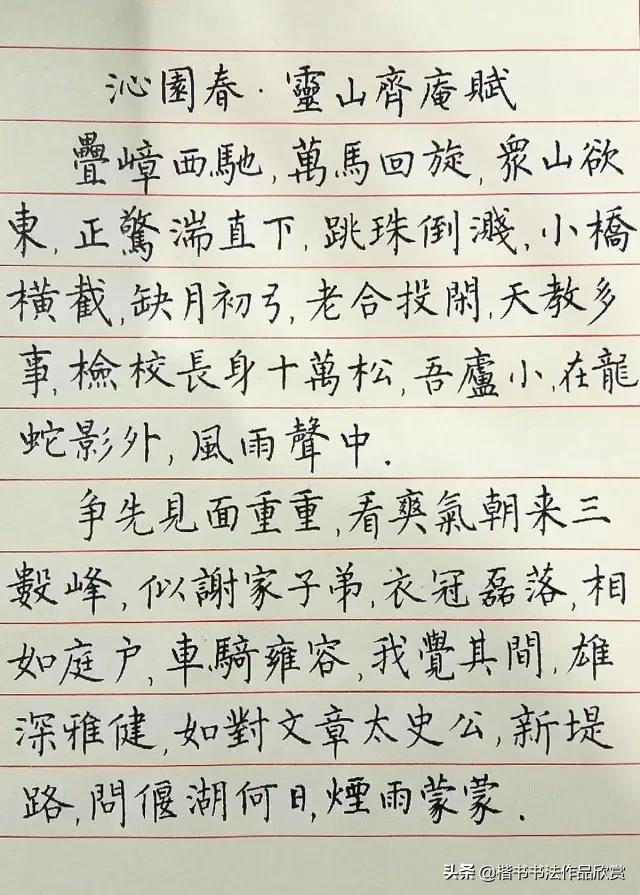 沁園春·靈山齊庵賦
疊嶂西馳,萬馬回旋,衆山欲
東,正驚湍直下,跳珠倒濺,小橋
橫截,缺月初弓,老合投閑,天教多
事,檢校長身十萬松,吾廬小,在龍
蛇影外,風雨聲中.
争先見面重重,看爽氣朝来三
數峰,似謝家子弟,衣冠磊落,相
如庭户,車騎雍容,我覺其間,雄
深雅健,如對文章太史公,新堤
路,問偃湖何日,煙雨蒙蒙.
头条 @楷书书法作品欣赏